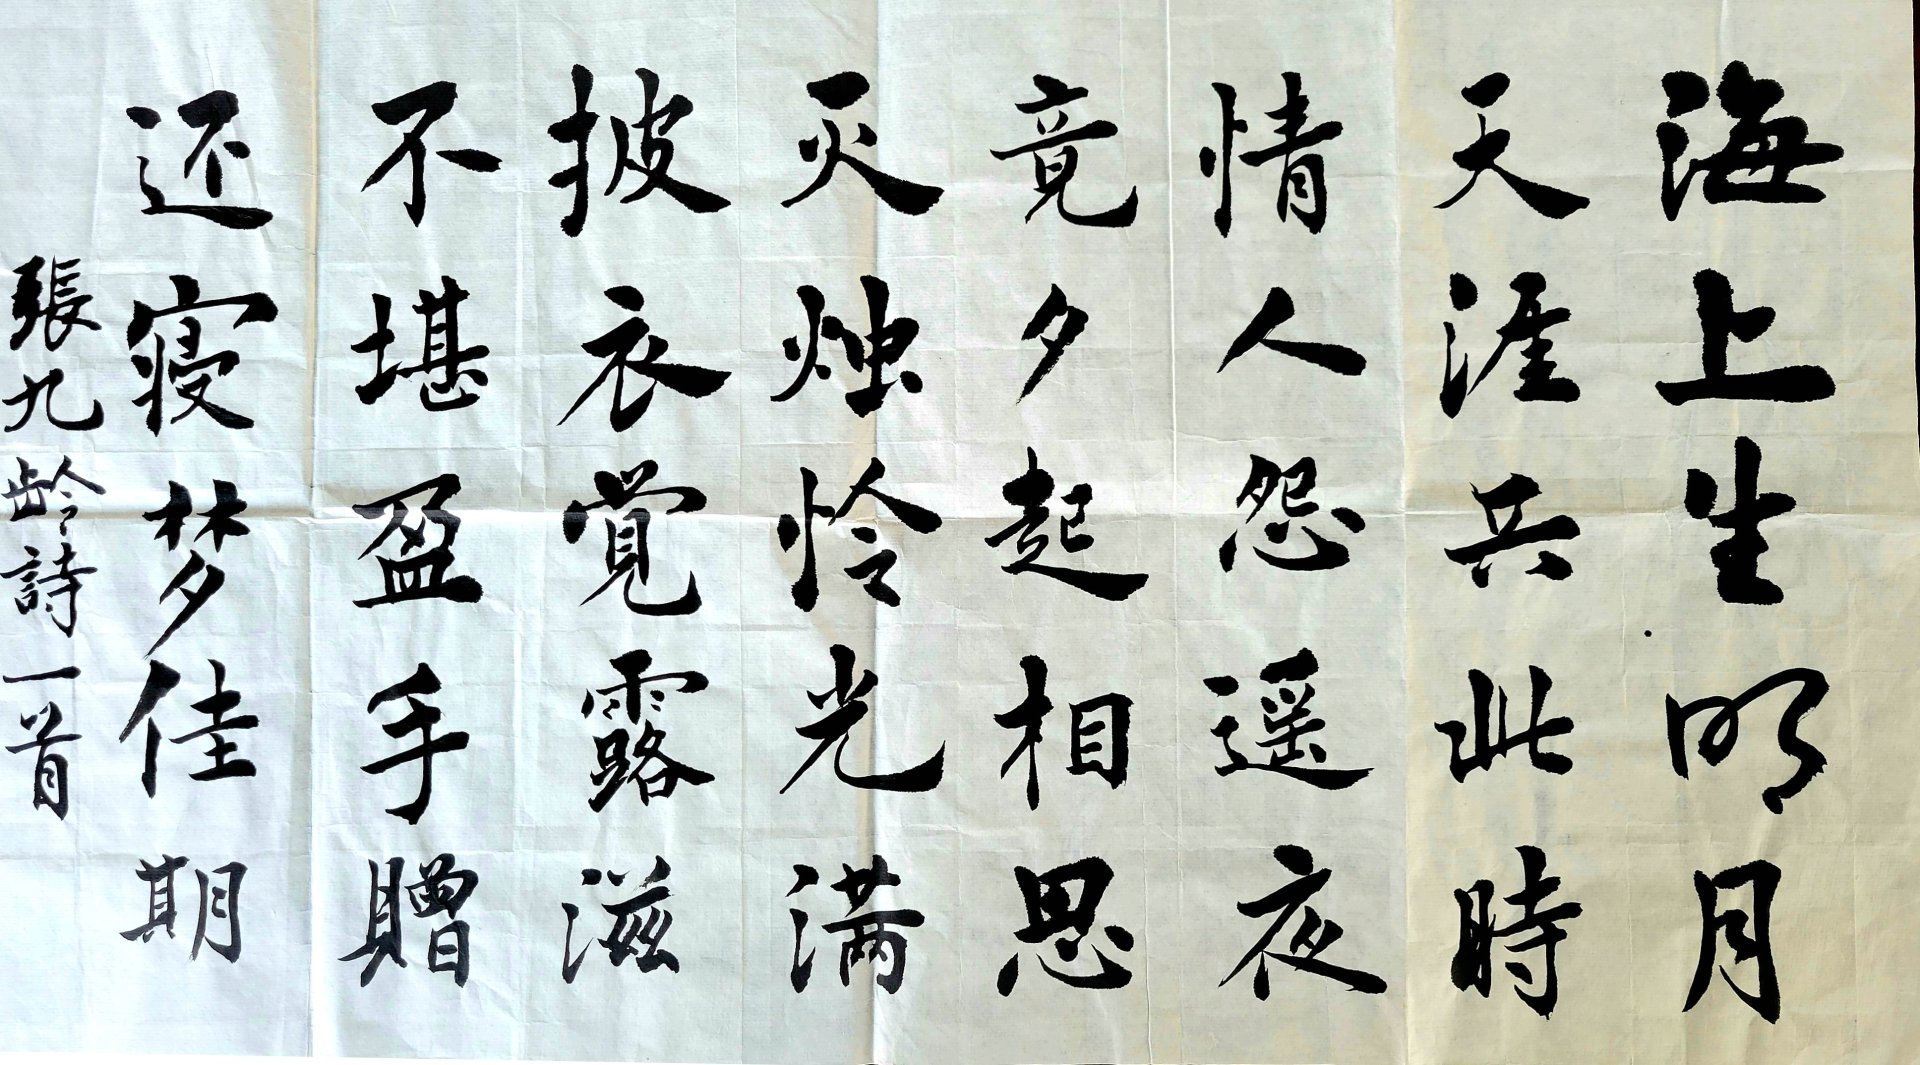 海上生明月
天涯共此時
情人怨遥夜
竟夕起相思
灭烛怜光满
披衣覚露滋
不堪盈手贈
还寝梦佳期
張九齡詩一首